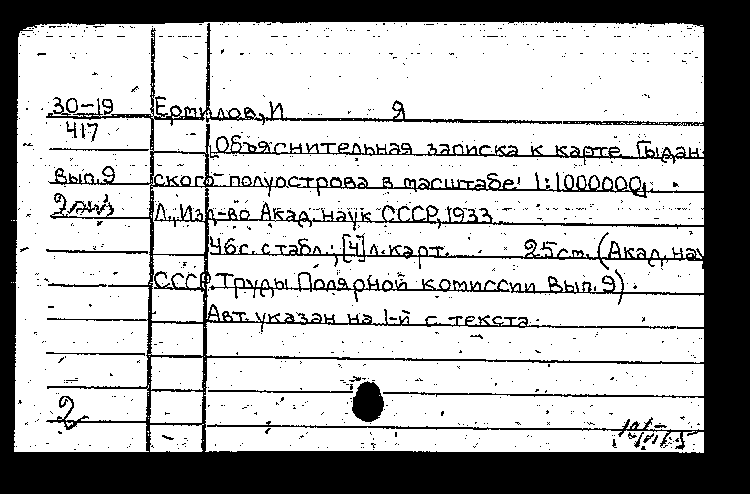 30-19 Ермилов, И Я
417
Объяснительная записка к карте Гыдан
Вып.9 ского полуострова в масштабе 1:1000000.
2 экз Л., Изд-во Акад. наук СССР, 1933
46 с. с табл.; [4] л. карт. 25 см. (Акад. нау
СССР. Труды Полярной комиссии Вып. 9)
Авт. указан на 1-й с. текста
2